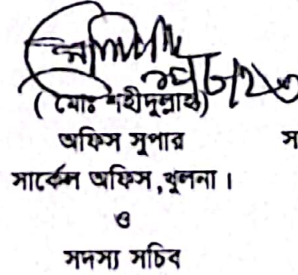 (মোঃ শহীদুল্লাহ)
অফিস সুপার
সার্কেল অফিস,খুলনা।
ও
সদস্য সচিব